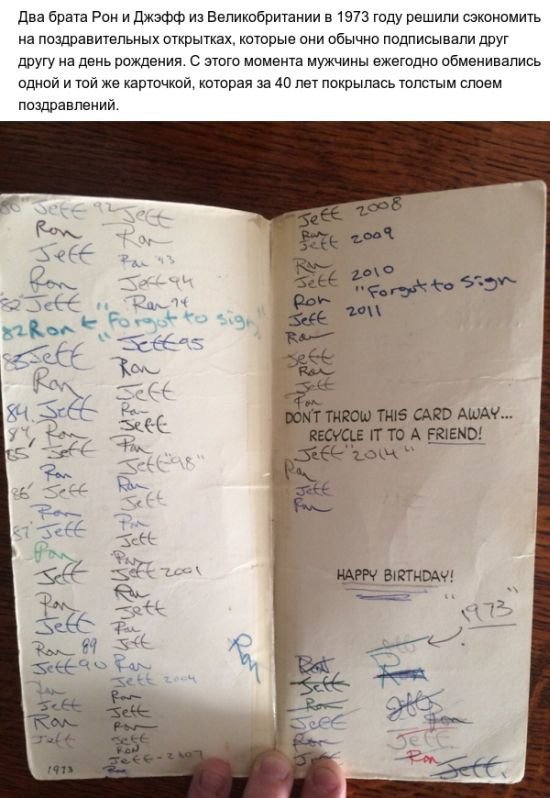 Два брата Рон и Джэфф из Великобритании в 1973 году решили сэкономить
на поздравительных открытках, которые они обычно подписывали друг
другу на день рождения. С этого момента мужчины ежегодно обменивались
одной и той же карточкой, которая за 40 лет покрылась толстым слоем
поздравлений.
Jeff
Ron
Jeff
Ron
"82" Jeff
82 Ron "Forgot to sign"
83 Jeff
Ron
84. Jeff
84 Ron
85' Jeff
Ron
86' Jeff
Ron
87' Jeff
Ron
Jeff
Ron
Jeff
Ron 89
Jeff 90
Ron
Jeff
Ron
Jeff
1973
92 Jeff
Ron
Ron 93
Jeff 94
Ron 94
Jeff 95
Ron
Jeff
Ron
Jeff
Ron
Jeff "98"
Ron
Jeff
Ron
Jeff
Ron
Jeff 2001
Ron
Jeff
Ron
Jeff
Ron
Jeff 2004
Ron
Jeff
Ron
Jeff
Ron
Jeff - 2007
Ron
Ron
Jeff 2008
Ron
Jeff 2009
Ron
Jeff 2010
Ron "Forgot to sign
Jeff 2011
Ron
Jeff
Ron
Jeff
Ron
DON'T THROW THIS CARD AWAY...
RECYCLE IT TO A FRIEND!
Jeff "2014"
Ron
Jeff
Ron
HAPPY BIRTHDAY!
"1973"
Ron
Jeff
Ron
Jeff
Ron
Jeff
Jeff
Ron
Jeff
Ron
Jeff
Ron
Jeff.